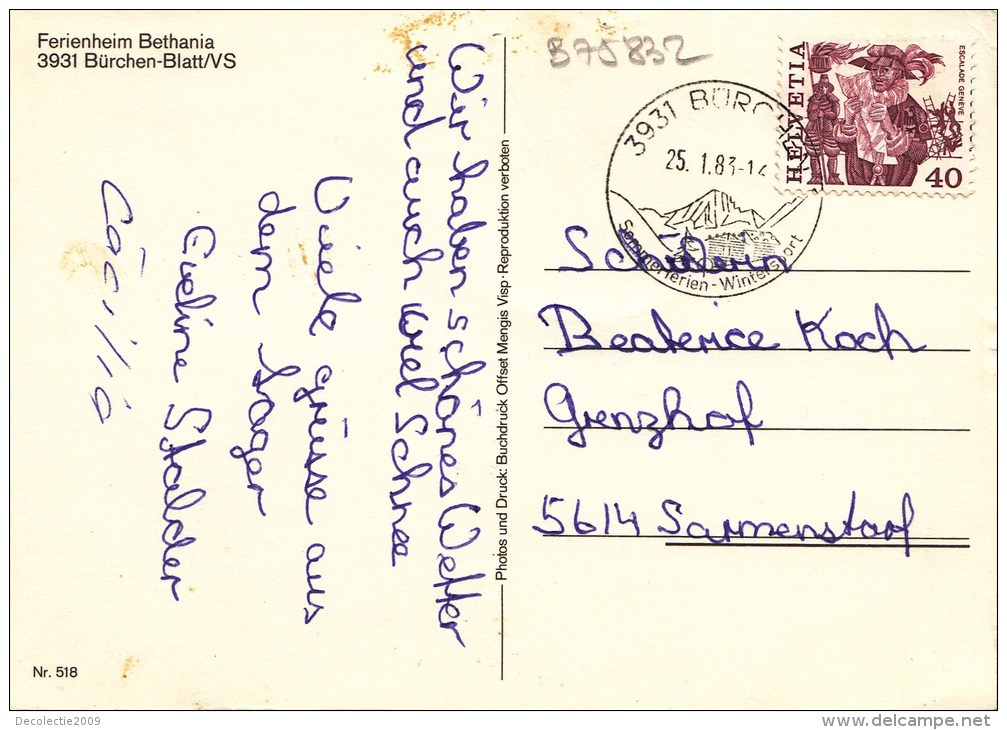 Ferienheim Bethania
3931 Bürchen-Blatt/VS
B75832
3931 BÜRCHEN
25.1.83-14
Sommerferien-Wintersport
HELVETIA
ESCALADE GENÈVE
40
Wir haben schönes Wetter
und auch viel Schnee
Viele grüsse aus
dem Lager
Eveline Stalder
Cäcilia
Photos und Druck: Buchdruck Offset Mengis Visp · Reproduktion verboten
Schülerin
Beaterice Koch
Grenzhof
5614 Sarmenstorf
Nr. 518
Decolectie2009
delcampe.net